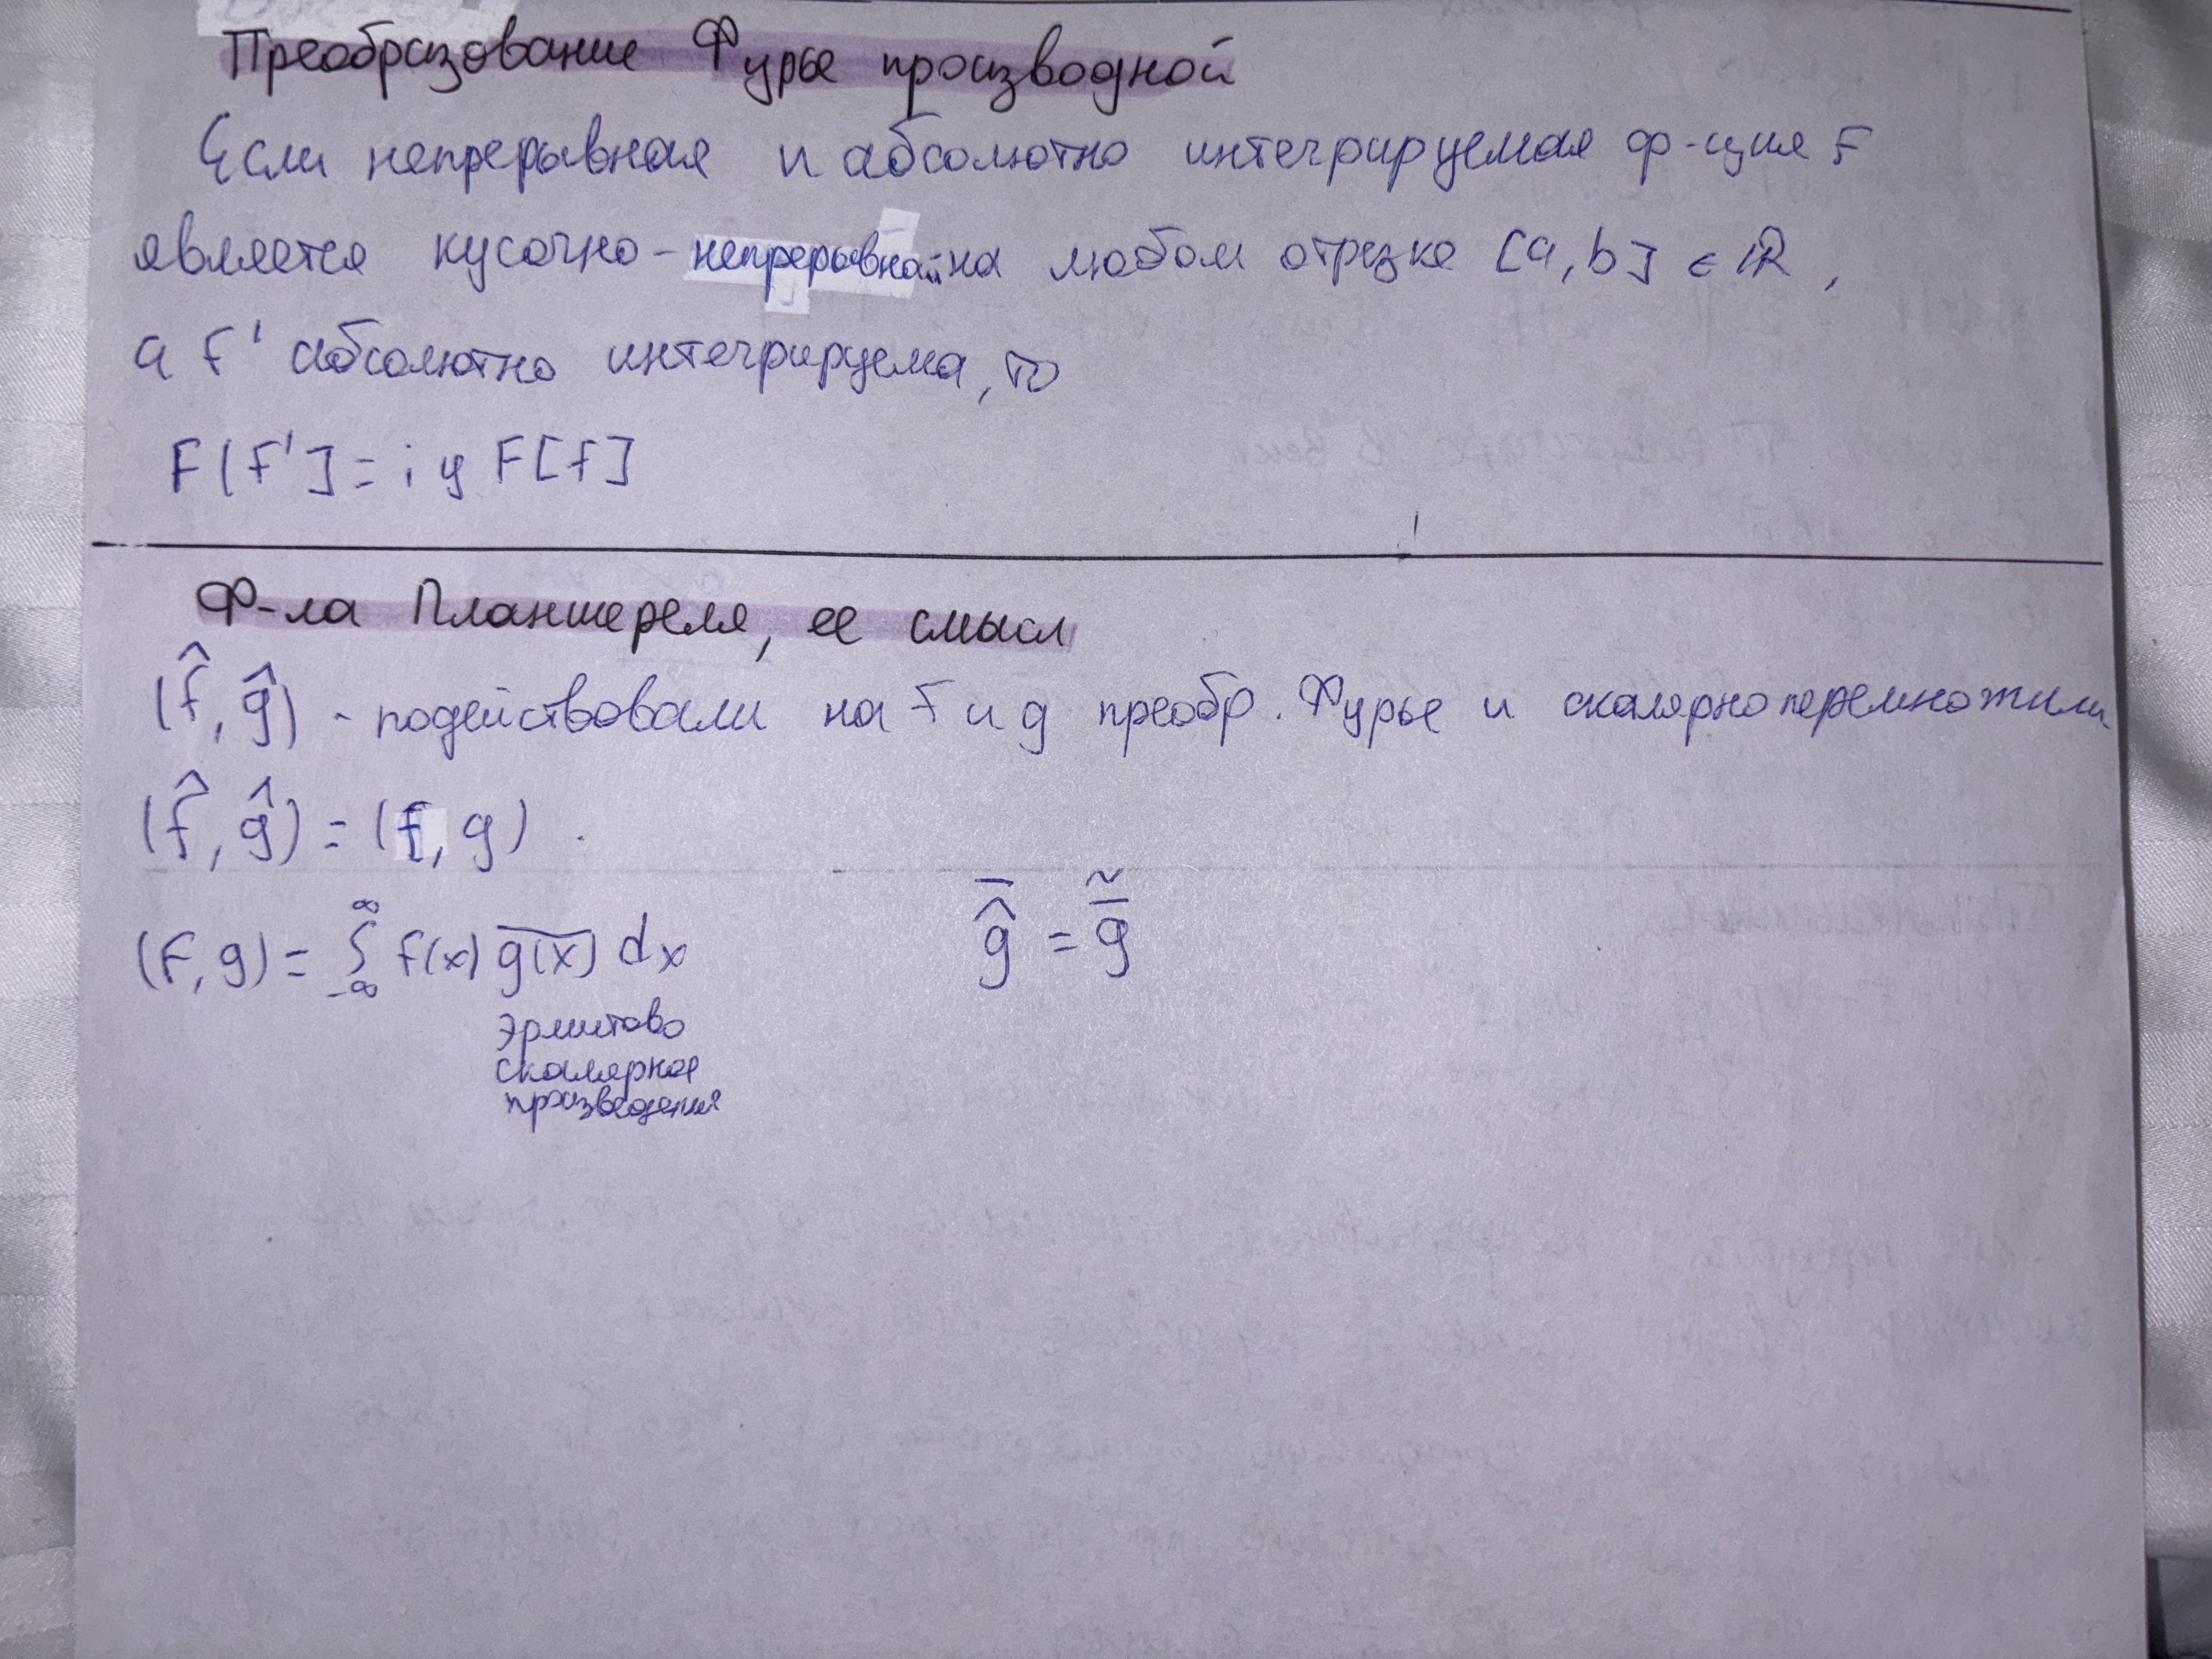 Преобразование Фурье производной
Если непрерывная и абсолютно интегрируемая ф-ция f
является кусочно-непрерывной на любом отрезке [a, b] ∈ ℝ,
а f' абсолютно интегрируема, то
F[f'] = i y F[f]
Ф-ла Планшереля, ее смысл
(f̂, ĝ) - подействовали на f и g преобр. Фурье и скалярно перемножили
(f̂, ĝ) = (f, g)
(f, g) = ∫_{-∞}^{∞} f(x) \overline{g(x)} dx \overline{\hat{g}} = \tilde{\overline{g}}
эрмитово
скалярное
произведения